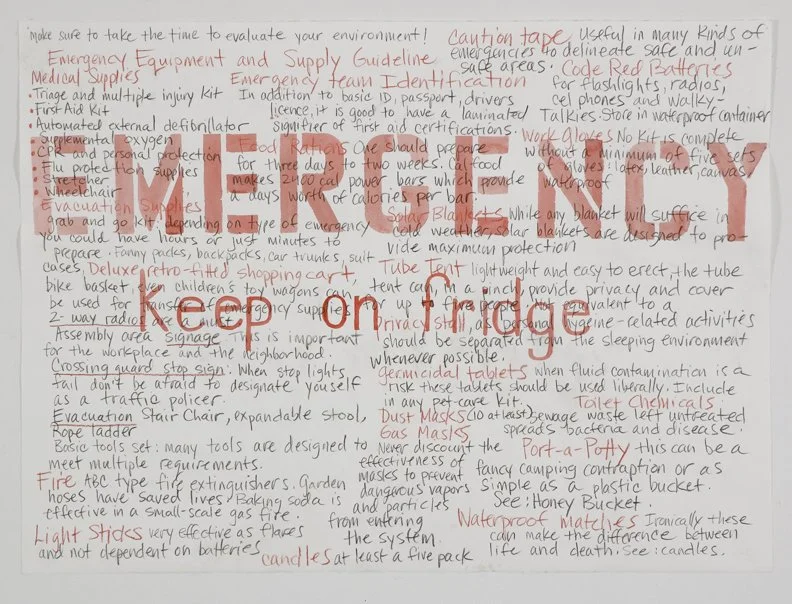 make sure to take the time to evaluate your environment!
Emergency Equipment and Supply Guideline
Medical Supplies
• Triage and multiple injury kit
• First Aid Kit
• Automated external defibrillator
• Supplemental oxygen
• CPR and personal protection
• Flu protection supplies
• Stretcher
• Wheelchair
Emergency team Identification
In addition to basic ID, passport, drivers
licence, it is good to have a laminated
signifier of first aid certifications.
caution tape Useful in many kinds of
emergencies to delineate safe and un-
safe areas. Code Red Batteries
for flashlights, radios,
cel phones and walky-
Talkies. Store in waterproof container
Work Gloves No Kit is complete
without a minimum of five sets
of gloves: latex, leather, canvas,
waterproof
EMERGENCY
Food Rations One should prepare
for three days to two weeks. Cal food
makes 2400 cal power bars which provide
a days worth of calories per bar.
Evacuation Supplies
grab and go kit depending on type of emergency
you could have hours or just minutes to
prepare. Fanny packs, backpacks, car trunks, suit
cases, Deluxe retro-fitted shopping cart,
bike basket, even children's toy wagons can
be used for transfer of emergency supplies
Solar Blankets While any blanket will suffice in
cold weather, solar blankets are designed to pro-
vide maximum protection
Tube Tent lightweight and easy to erect, the tube
tent can in a pinch provide privacy and cover
for up to five people. Not equivalent to a
Privacy Stall, as personal hygeine-related activities
should be separated from the sleeping environment
whenever possible.
Keep on fridge
2-way radios are a must
Assembly area signage This is important
for the workplace and the neighborhood.
Crossing guard stop sign: When stop lights
fail don't be afraid to designate youself
as a traffic policer.
Evacuation Stair Chair, expandable stool,
Rope ladder
Basic tools set: many tools are designed to
meet multiple requirements.
Fire ABC type fire extinguishers. Garden
hoses have saved lives. Baking soda is
effective in a small-scale gas fire.
Light Sticks very effective as flares
and not dependent on batteries
germicidal tablets when fluid contamination is a
risk these tablets should be used liberally. Include
in any pet-care kit. Toilet Chemicals
sewage waste left untreated
spreads bacteria and disease.
Dust Masks (10 at least)
Gas Masks
Never discount the
effectiveness of
masks to prevent
dangerous vapors
and particles
from entering
the system.
Port-a-Potty this can be a
fancy camping contraption or as
simple as a plastic bucket.
See: Honey Bucket.
Waterproof matches Ironically these
can make the difference between
life and death. See: candles.
candles at least a five pack